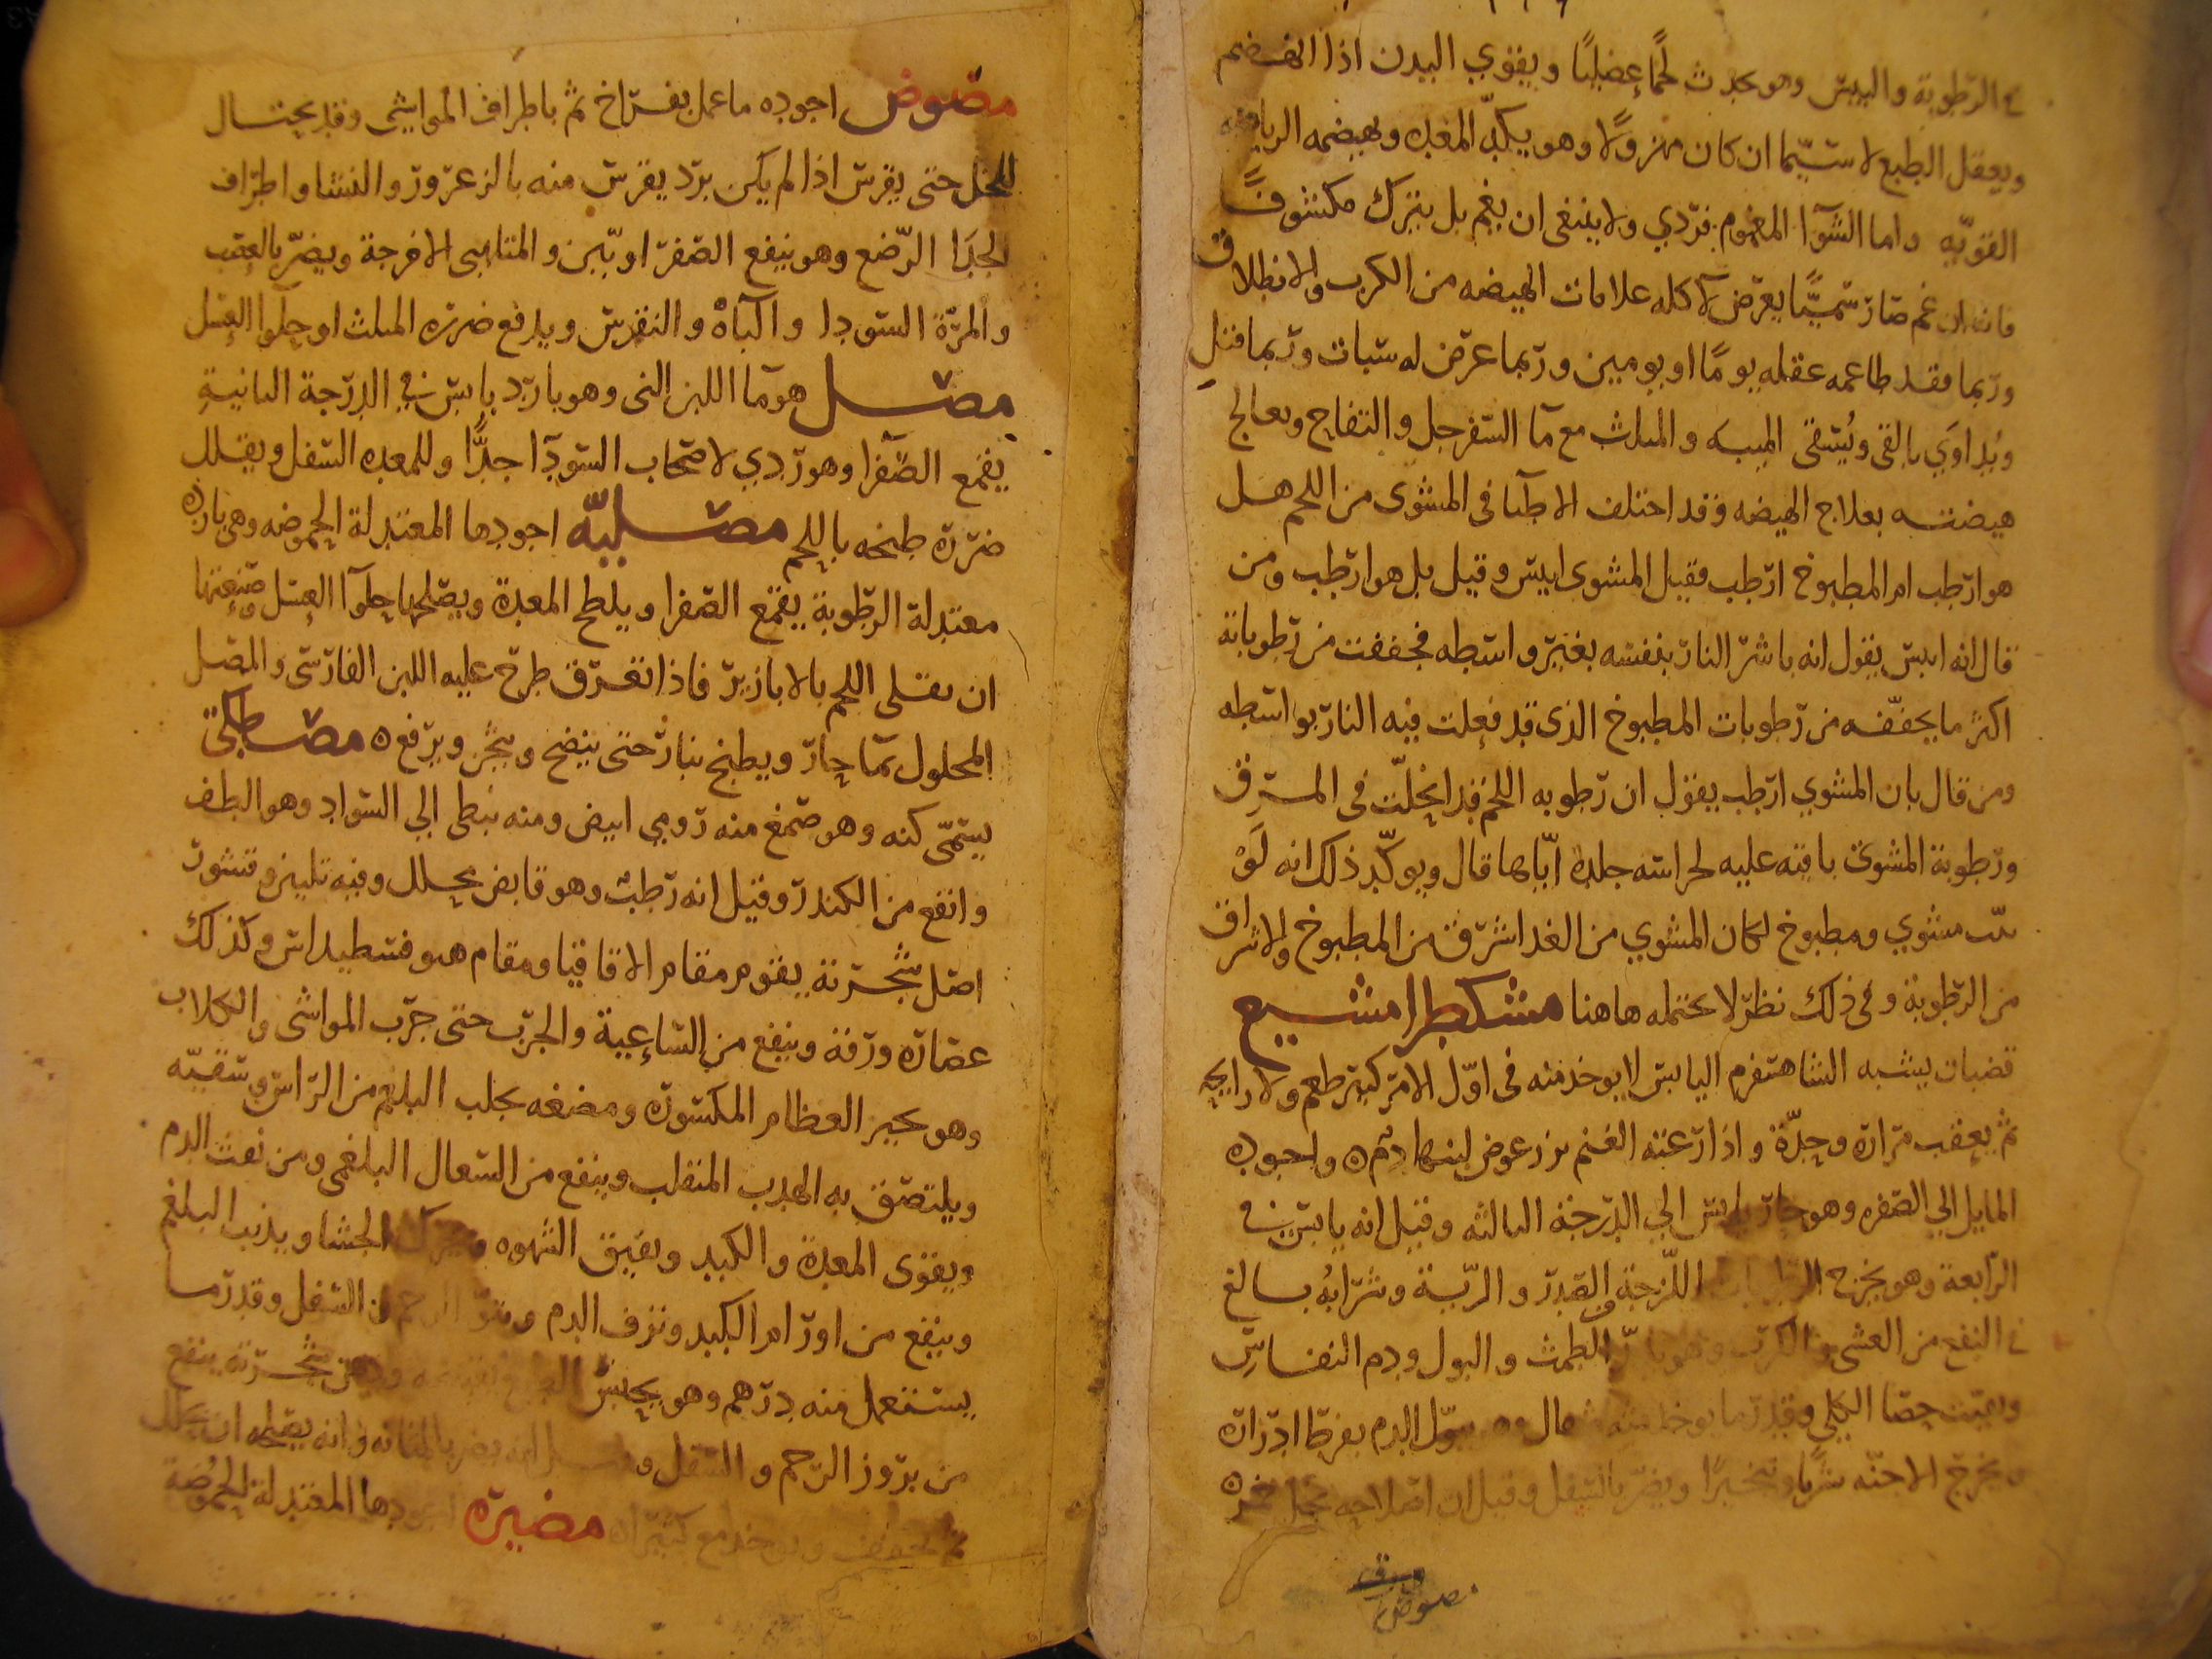 الرطوبة واليبس وهو يحدث لحمًا عضليًا ويقوي البدن اذا انهضم
ويعقل الطبع لا سيّما ان كان مهزولًا وهو يكدّ المعده ويهضمه الرياضه
القويّه واما الشوآ المغموم فردي ولا ينبغي ان يغم بل يترك مكشوفًا
فانه ان غم صار سميًّا يعرض لآكله علامات الهيضه من الكرب والانطلاق
وربما فقد طاعمه عقله يومًا او يومين وربما عرض له سبات وربما قتل
ويداوي بالقى ويُسقى الميبه والمثلث مع مآ السفرجل والتفاح وتعالج
هيضته بعلاج الهيضه وقد اختلف الاطبا فى المشوى من اللحم هل
هو ارطب ام المطبوخ ارطب فقيل المشوى ايبس وقيل بل هو ارطب ومن
قال انه ايبس يقول انه باشر النار بنفسه بغير واسطه فجففت من رطوباته
اكثر ما يجففه من رطوبات المطبوخ الذى قد فعلت فيه النار بواسطه
ومن قال بان المشوي ارطب يقول ان رطوبه اللحم قد انحلّت فى المرق
ورطوبة المشوى باقيه عليه لحراسه جلده ايّاها قال ويوكّد ذلك انه لَوْ
مشوي ومطبوخ لكان المشوي من الغد اشرق من المطبوخ والاشراق
من الرطوبة وفى ذلك نظر لا يحتمله هاهنا مشكطرامشيع
قضبان يشبه الشاهسفرم اليابس لا يوخذ منه فى اوّل الامر كبير طعم ولا رايحه
ثم يعقب مراره وحِدّة واذا رعته الغنم بزر عوض لبنها دم ه واجوده
المايل الي الصفره وهو حار يابس الي الدرجة الثالثه وقيل انه يابس في
الرابعة وهو يخرج اللزجة والصدر والريّة وشرابُه بالغ
النفع من الغشى والكرب وهو الطمث والبول ودم النفاس
ويفتت حصا الكلي وقد يبوّل الدم بفرط ادراره
ويخرج الاجنّه شربًا وتبخيرًا ويضرّ بالسفل وقيل ان اصلاحه بخل خمر ه
مصوص
مصوص اجوده ما عمل بفراخ ثم باطراف المواشى وقد يحتال
للخل حتى يقرس اذا لم يكن برد يقرس منه بالزعرور والنشا واطراف
الجدا الرّضع وهو ينفع الصفراويّين والمتلهبى الامزجة ويضرّ بالعصب
والمرّة السودا والباه والنقرس ويدفع ضرره المثلث او حلوا العسل
مصل هو مآ اللبن النى وهو بارد يابس في الدرجة الثانية
يقمع الصفرا وهو ردي لاصحاب السودا جدًّا وللمعده السفل ويقلل
ضرره طبخه باللحم مصليّه اجودها المعتدلة الحموضه وهى بارده
معتدلة الرطوبة يقمع الصفرا ويلطح المعدة ويصلحها حلوآ العسل وصنعتها
ان يقلى اللحم بالابازير فاذا تعرّق طرح عليه اللبن الفارسى والمصل
المحلول بمآ حار ويطبخ بنار حتى ينضج ويثخن ويرفع ه مصطكى
يسمّى كنه وهو صمغ منه رومي ابيض ومنه نبطى الي السواد وهو الطف
وانفع من الكندر وقيل انه رطب وهو قابض محلل وفيه تليين وقشور
اصل شجرته يقوم مقام الاقاقيا ومقام هيوفسطيداس وكذلك
عصاره ورقه وينفع من الساعية والجرب حتى جرب المواشى والكلاب
وهو يجبر العظام المكسوره ومضغه يجلب البلغم من الراس وينقيّه
ويلتصق به الهدب المنقلب وينفع من السعال البلغمى ومن نفث الدم
ويقوى المعدة والكبد ويفيق الشهوه ويحرك الجشا ويذيب البلغم
وينفع من اورام الكبد ونزف الدم ونتو الرحم السفل وقدر ما
يستعمل منه درهم وهو يحبس شجرته ينفع
من بروز الرحم والسفل يضر بالمثانه وانه يصلحه ان يحلل
ويوخذ مع كثيرا ه مضيره اجودها المعتدلة الحموضة